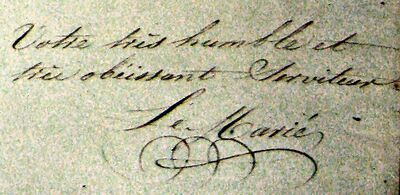 Votre très humble et
très obéissant Serviteur
Le Marié